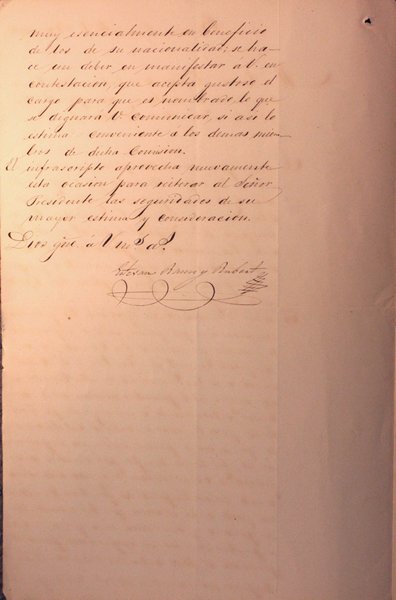 muy esencialmente en beneficio
de los de su nacionalidad, se ha-
ce un deber en manifestar a U. en
contestacion, que acepta gustoso el
cargo para que es nombrado lo que
se dignará U. comunicar, si asi lo
estima conveniente a los demas miem-
bros de dicha Comision.
El infrascripto aprovecha nuevamente
esta ocasion para reiterar al Señor
Presidente las seguridades de su
mayor estima y consideracion.
Dios gue á U. ms. as.